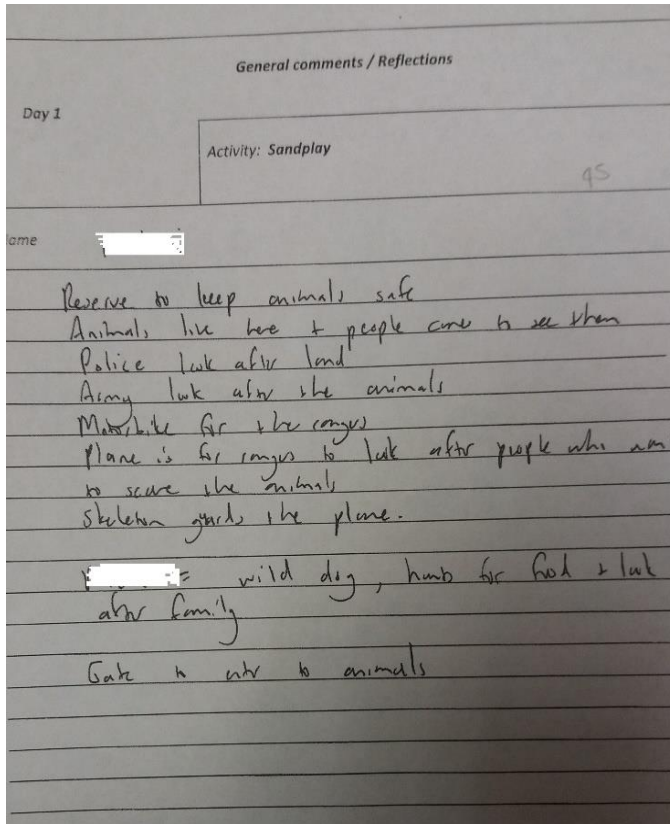 General comments / Reflections
Day 1
Activity: Sandplay
95
ame
Reserve to keep animals safe
Animals live here + people come to see them
Police look after land
Army look after the animals
Motorbike for the
Plane is for to look after people who
to scare the animals
Skeleton guards the plane.
= wild dog, for food + look
after family
Gate to enter to animals